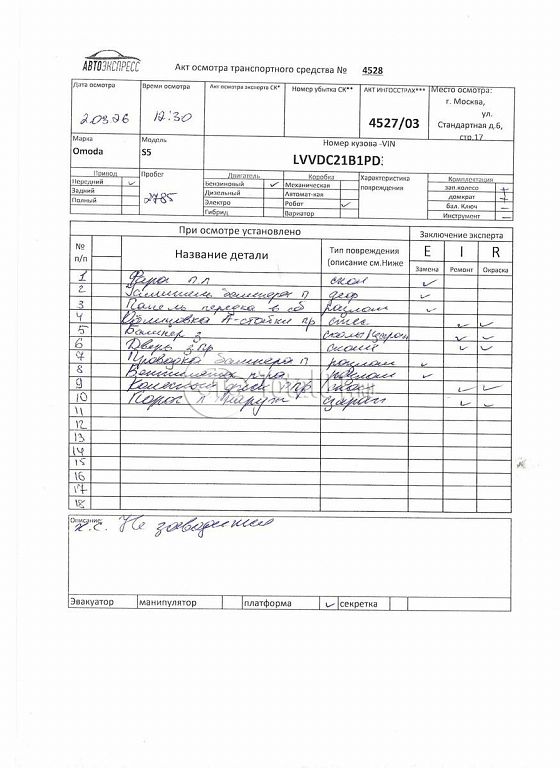 АВТОЭКСПРЕСС
Акт осмотра транспортного средства № 4528
Дата осмотра
Время осмотра
Акт осмотра эксперта СК*
Номер убытка СК**
АКТ ИНГОССТРАХ***
Место осмотра:
г. Москва,
ул.
Стандартная д.6,
стр.17
12:30
4527/03
Марка
Модель
Номер кузова -VIN
Omoda
S5
LVVDC21B1PD
Привод
Пробег
Двигатель
Коробка
Характеристика
повреждения
Комплектация
Передний
Бензиновый
Механическая
зап.колесо +
Задний
2785
Дизельный
Автомат-кая
домкрат +
Полный
Электро
Робот
бал. Ключ –
Гибрид
Вариатор
Инструмент –
При осмотре установлено
Заключение эксперта
№
п/п
Название детали
Тип повреждения
(описание см.Ниже
E I R
Замена Ремонт Окраска
1 Фара п л скол
2 бампера п деф
3 Панель передка в сб разлом
4 Облицовка А-стойки пр
5 Бампер з сколы/царап
6 Дверь з пр
7 Проводка бампера п разлом
8 разлом
9 Колесный диск
10 Порог л наруж царап
11
12
13
14
15
16
17
18
Описание:
Не заводится
Эвакуатор манипулятор платформа секретка